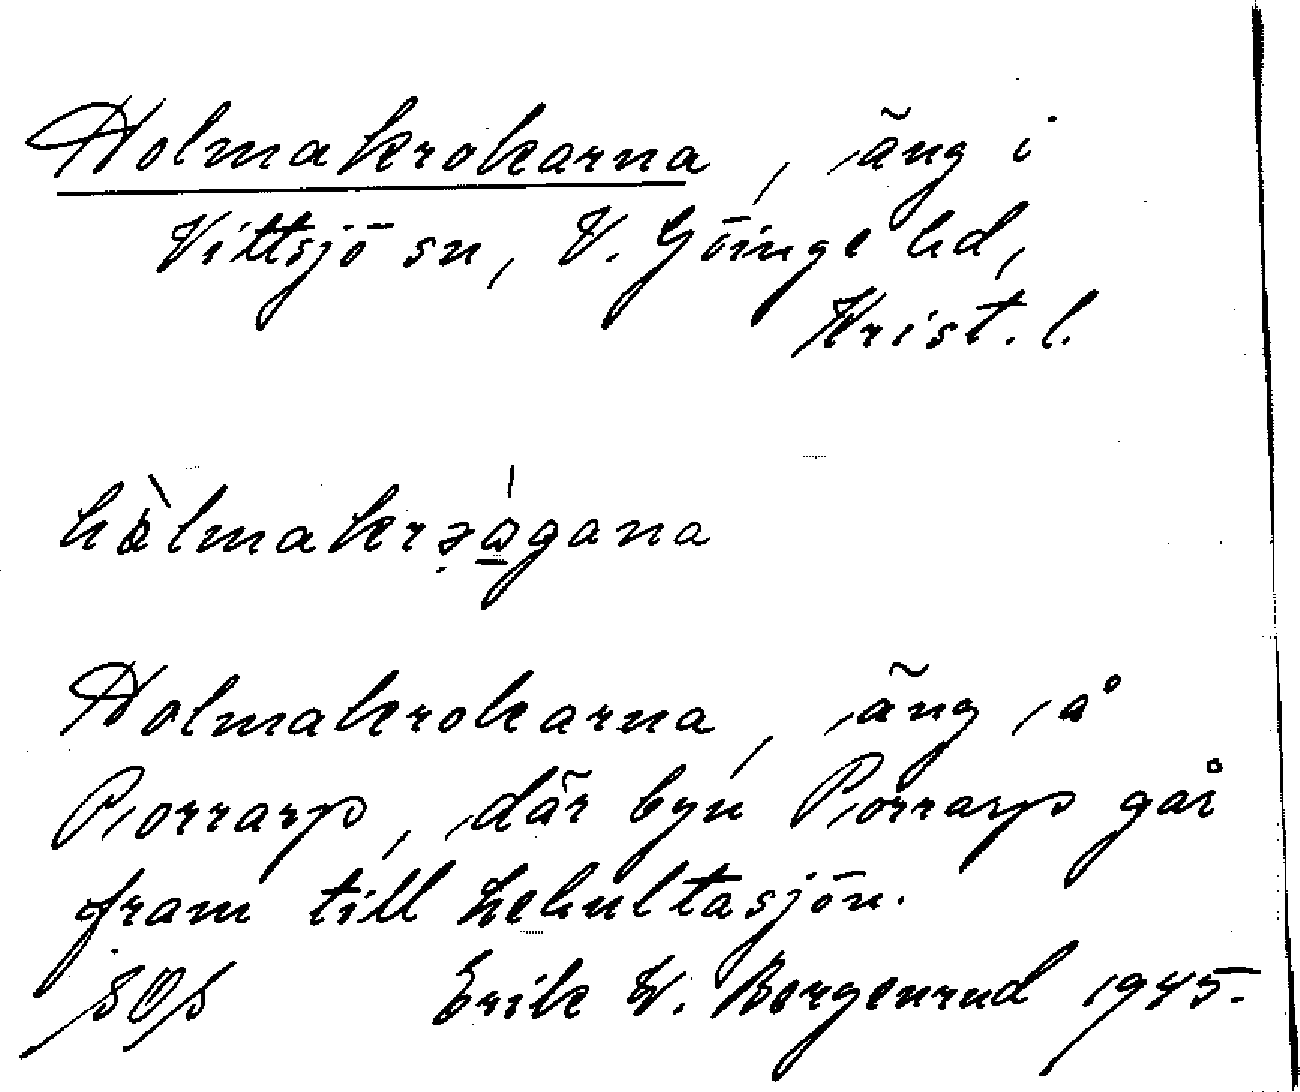 Holmakrokarna, äng i
Vittsjö sn, V. Göinge hd,
Krist. l.
hòlmakrəágana
Holmakrokarna, äng å
Porrarp, där byn Porrarp går
fram till Lehultasjön.
SOS Erik W. Borgenrud 1945.